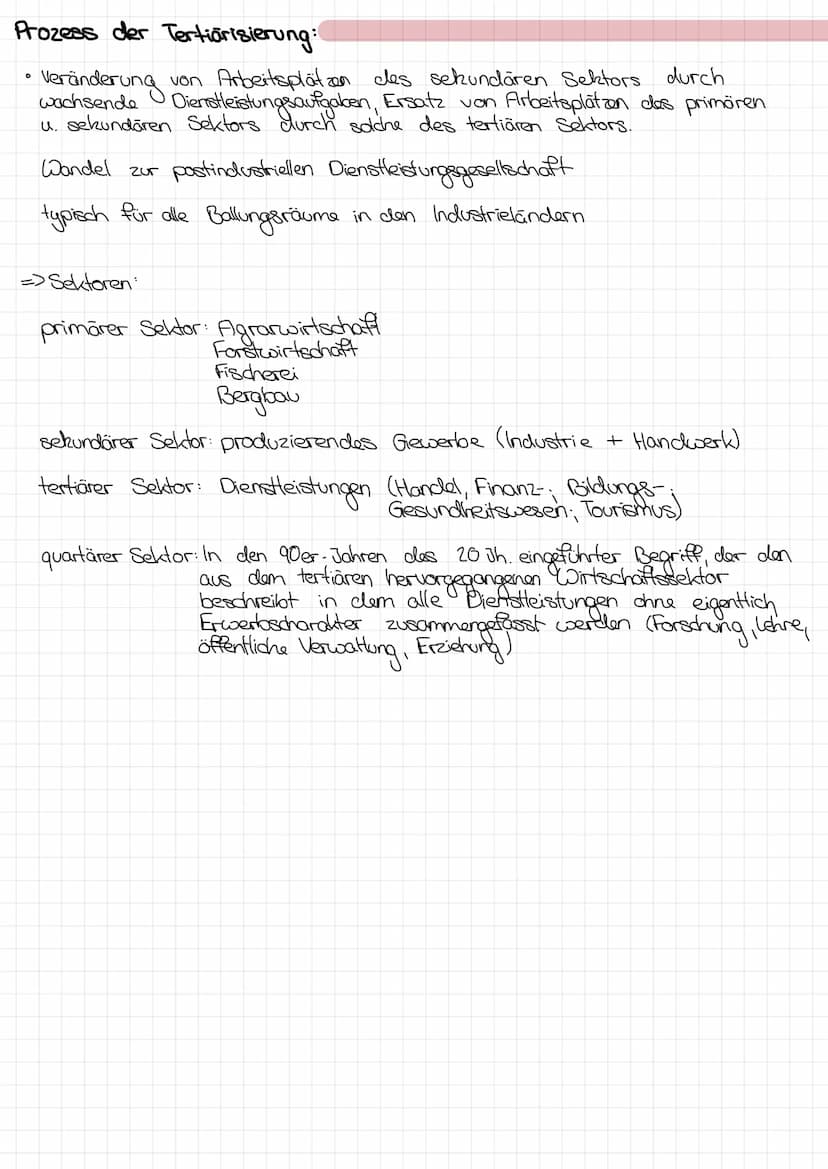 Prozess der Tertiärisierung:
• Veränderung von Arbeitsplätzen des sekundären Sektors durch
wachsende Dienstleistungsaufgaben, Ersatz von Arbeitsplätzen des primären
u. sekundären Sektors durch solche des tertiären Sektors.
Wandel zur postindustriellen Dienstleistungsgesellschaft
typisch für alle Ballungsräume in den Industrieländern
=> Sektoren:
primärer Sektor: Agrarwirtschaft
Forstwirtschaft
Fischerei
Bergbau
sekundärer Sektor: produzierendes Gewerbe (Industrie + Handwerk)
tertiärer Sektor: Dienstleistungen (Handel, Finanz-; Bildungs-;
Gesundheitswesen; Tourismus)
quartärer Sektor: In den 90er-Jahren des 20 Jh. eingeführter Begriff, der den
aus dem tertiären hervorgegangenen Wirtschaftssektor
beschreibt in dem alle Dienstleistungen ohne eigentlich
Erwerbscharakter zusammengefasst werden (Forschung, Lehre,
öffentliche Verwaltung, Erziehung)